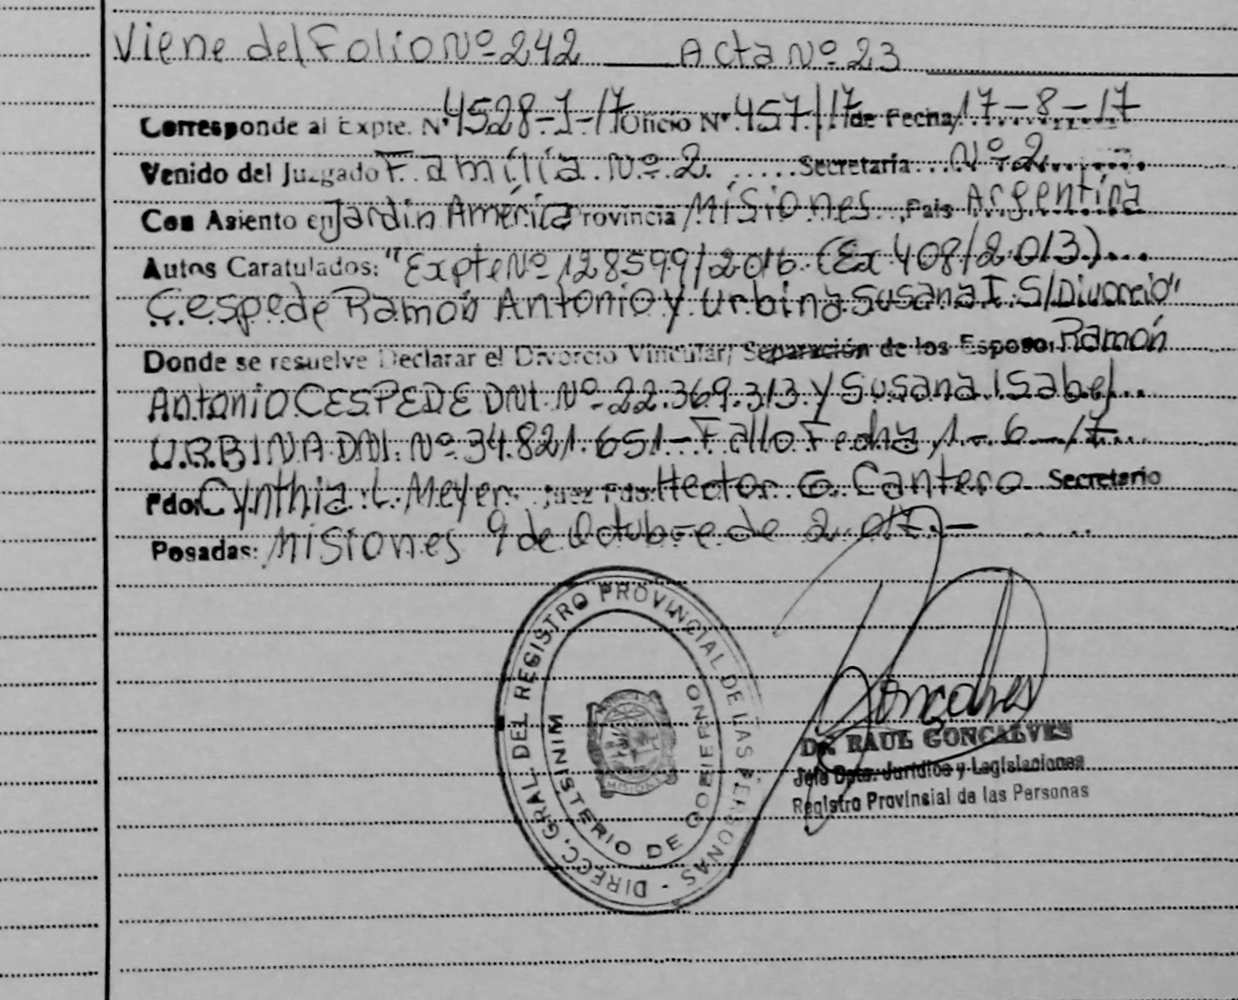 Viene del Folio Nº 242 Acta Nº 23
Corresponde al Expte. Nº 4528-J-17 Oficio Nº 457/17 de Fecha 17-8-17
Venido del Juzgado Familia Nº 2 Secretaria Nº 2
Con Asiento en Jardin América Provincia Misiones País Argentina
Autos Caratulados: "Expte Nº 128599/2016 (Ex 408/2013)
Cespede Ramón Antonio y Urbina Susana I. S/Divorcio"
Donde se resuelve Declarar el Divorcio Vincular/ Separación de los Esposos Ramón
Antonio CESPEDE DNI. Nº 22.369.313 y Susana Isabel
URBINA DNI. Nº 34.821.651- Fallo Fecha 1-6-17
Fdo. Cynthia L. Meyer Juez Fdo. Hector G. Cantero Secretario
Posadas: Misiones 9 de Octubre de 2.017.-
DIRECC. GRAL DEL REGISTRO PROVINCIAL DE LAS PERSONAS -
MINISTERIO DE GOBIERNO
MISIONES
Goncalves
Dr. RAUL GONCALVES
Jefe Dpto. Jurídico y Legislaciones
Registro Provincial de las Personas